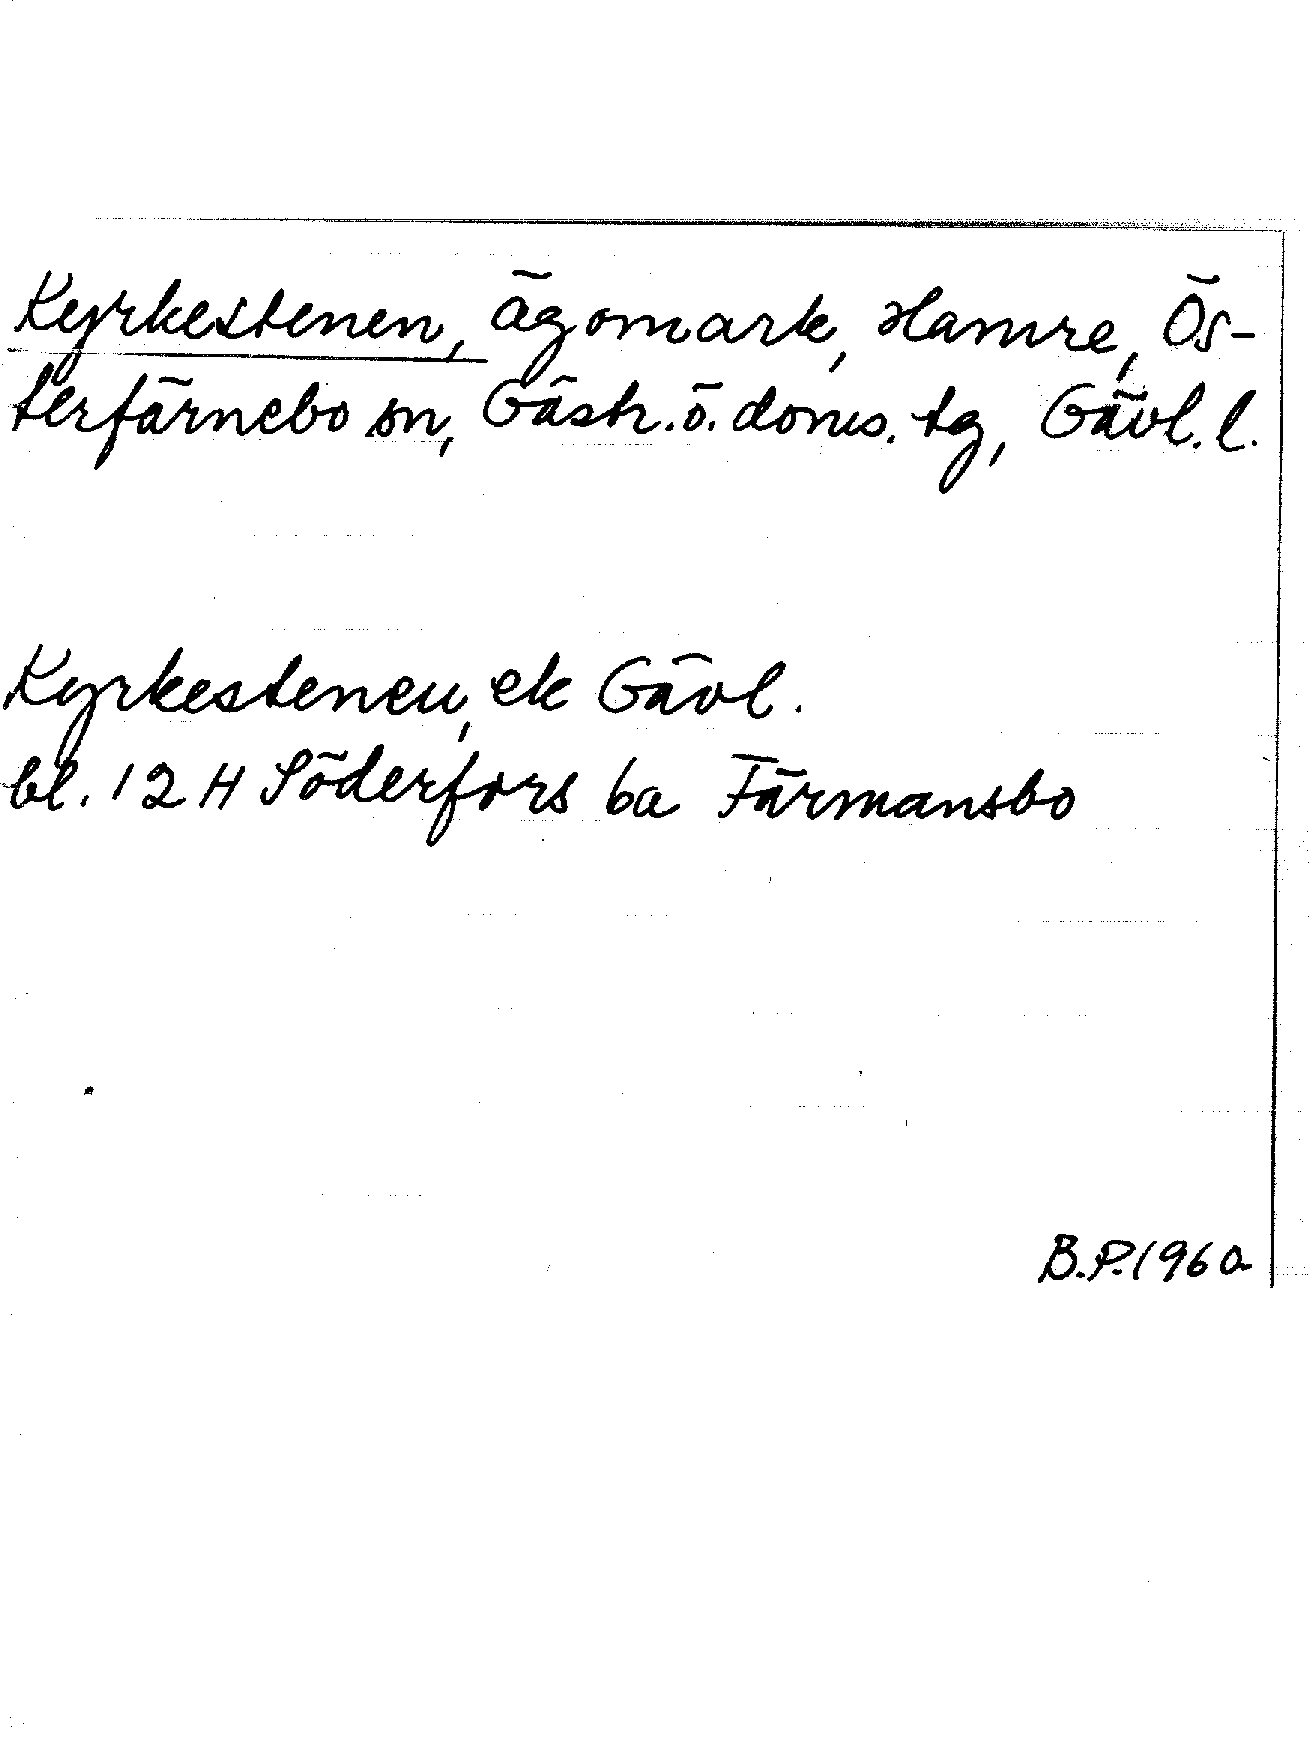 Kyrkestenen, ägomark, Hamre, Ös-
terfärnebo sn, Gästr. ö. doms. tg, Gävl. l.
Kyrkestenen, ek Gävl.
bl. 12 H Söderfors 6a Färmansbo
B.P. 1960